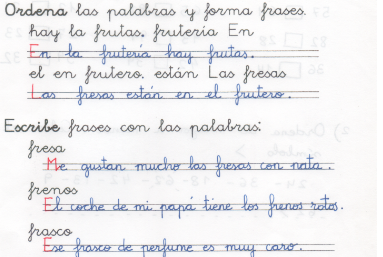 Ordena las palabras y forma frases.
hay la frutas. frutería En
En la frutería hay frutas.
el en frutero. están Las fresas
Las fresas están en el frutero.
Escribe frases con las palabras:
fresa
Me gustan mucho las fresas con nata.
frenos
El coche de mi papá tiene los frenos rotos.
frasco
Ese frasco de perfume es muy caro.